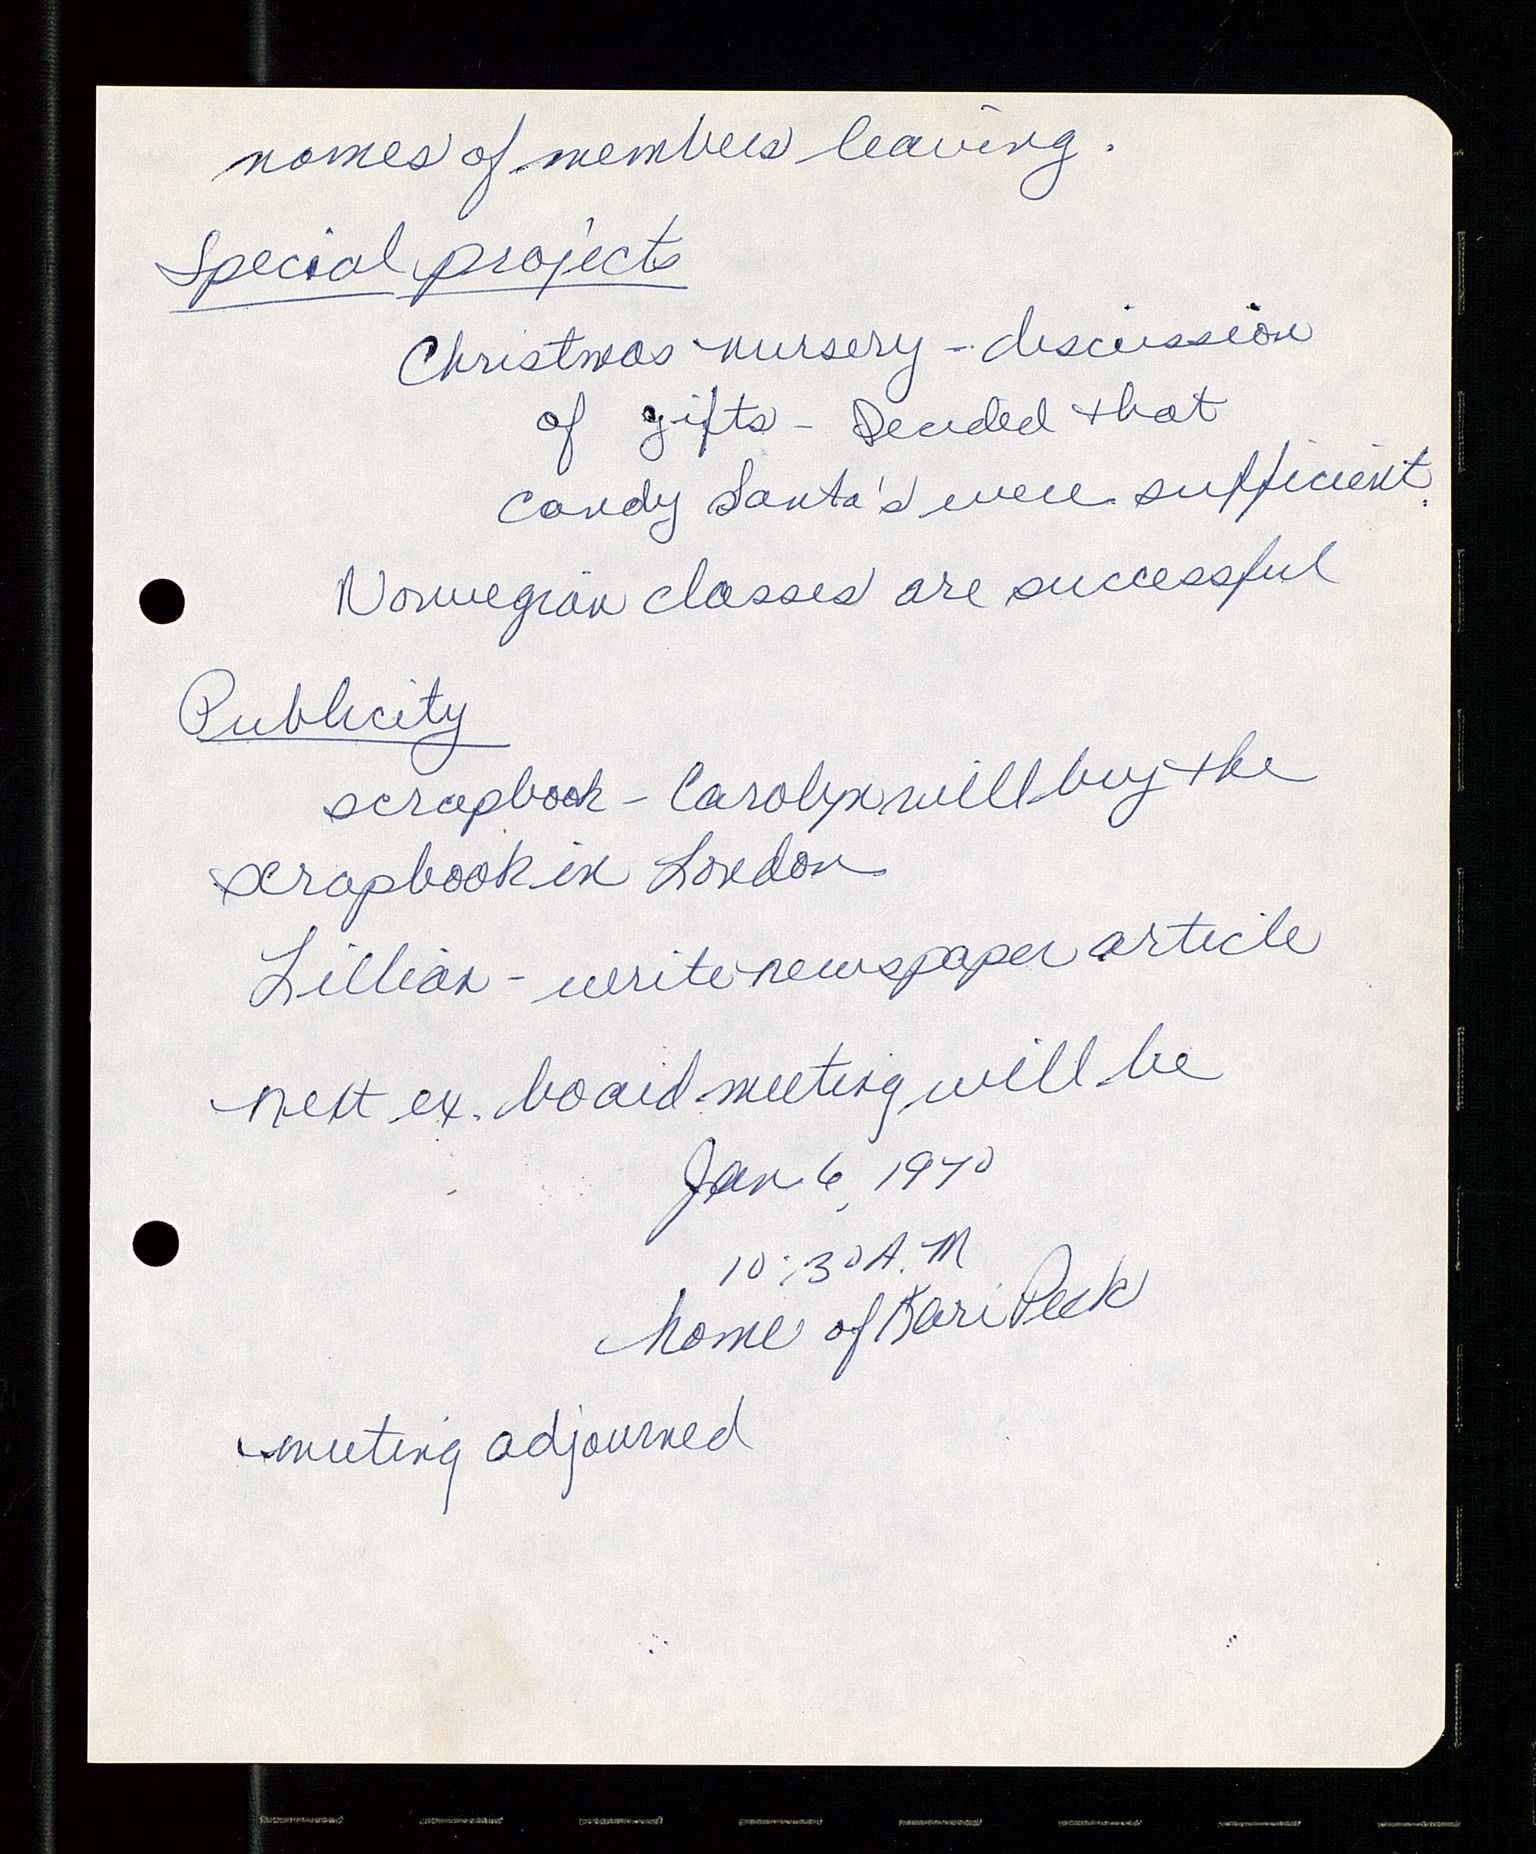 names of members leaving.
Special projects
Christmas nursery - discussion
of gifts - Decided that
candy Santa's were sufficient.
Norwegian classes are successful
Publicity
scrapbook - Carolyn will buy the
scrapbook in London
Lillian - write newspaper article
next ex. board meeting will be
Jan 6, 1970
10:30 A.M
home of Kari Peck
meeting adjourned